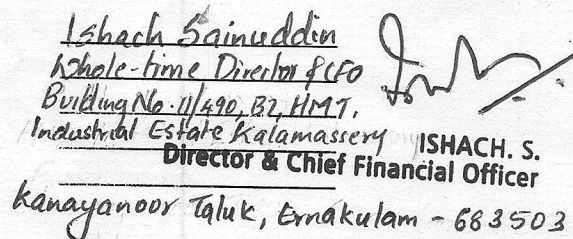 Ishach Sainuddin
Whole-time Director & CFO
Building No. 11/490, B2, HMT,
Industrial Estate Kalamassery
ISHACH. S.
Director & Chief Financial Officer
Kanayanoor Taluk, Ernakulam - 683503